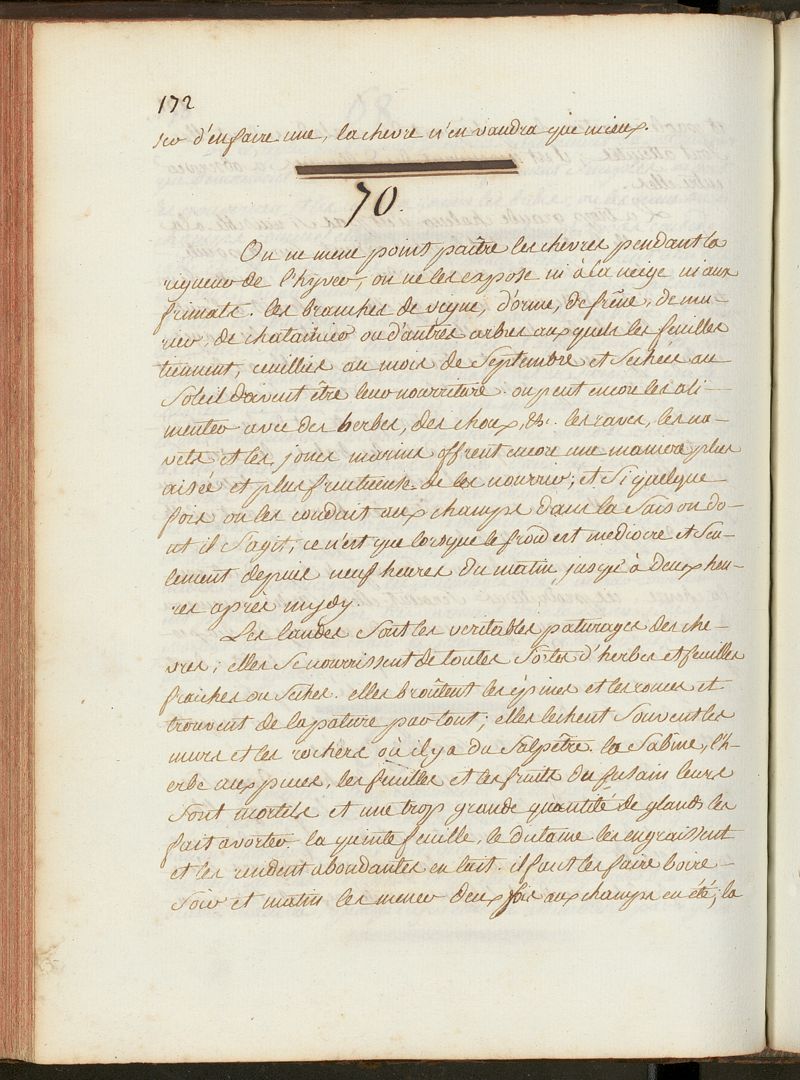 172
ser d'en faire une, la chevre n'en vaudra que mieux.
70.
On ne mene point paître les chevres pendant la
rigueur de l'hyver, on ne les expose ni à la neige ni aux
frimats. les branches de vigne, d'orme, de frêne, de mu-
rier, de chatainier ou d'autres arbres aux quels les feuilles
tiennent, cueillies au mois de Septembre et Sechées au
Soleil doivent être leur nourriture. on peut encore les ali-
menter avec des herbes, des choux, &c. les raves, les na-
vets et les joncs marins offrent encore une maniere plus
aisée et plus fructueuse de les nourrir; et Si quelque
fois on les conduit aux champs dans la Saison do-
nt il S'agit, ce n'est que lorsque le froid est mediocre et Seu-
lement depuis neuf heures du matin jusq'à deux heu-
res après mydy.
Les landes Sont les veritables paturages des che-
vres; elles Se nourrissent de toutes Sortes d'herbes et feuilles
fraiches ou Seches. elles broûtent les épines et les ronces et
trouvent de la pature par tout; elles lechent Souvent les
murs et les rochers où il y a du Salpêtre. la Sabine, l'h-
erbe aux puces, les feuilles et les fruits du fusain leurs
Sont mortels et une trop grande quantité de glands les
fait avorter. la quinte feuille, le dictame les engraissent
et les rendent abondantes en lait. il faut les faire boire
Soir et matin les mener deux fois aux champs en été; la